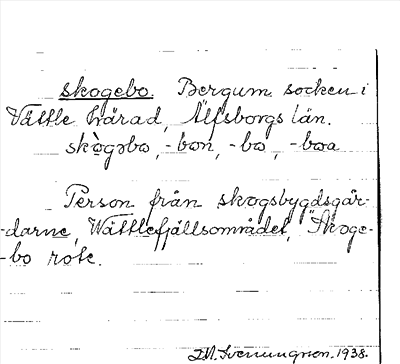 skogebo. Bergum socken i
Vättle härad, Älfsborgs län.
skògəbo, -bon, -bo, -boa
Person från skogsbygdsgår-
darne, Vättlefjällsområdet, "Skoge-
-bo rote.
J.M. Svenungson. 1938.